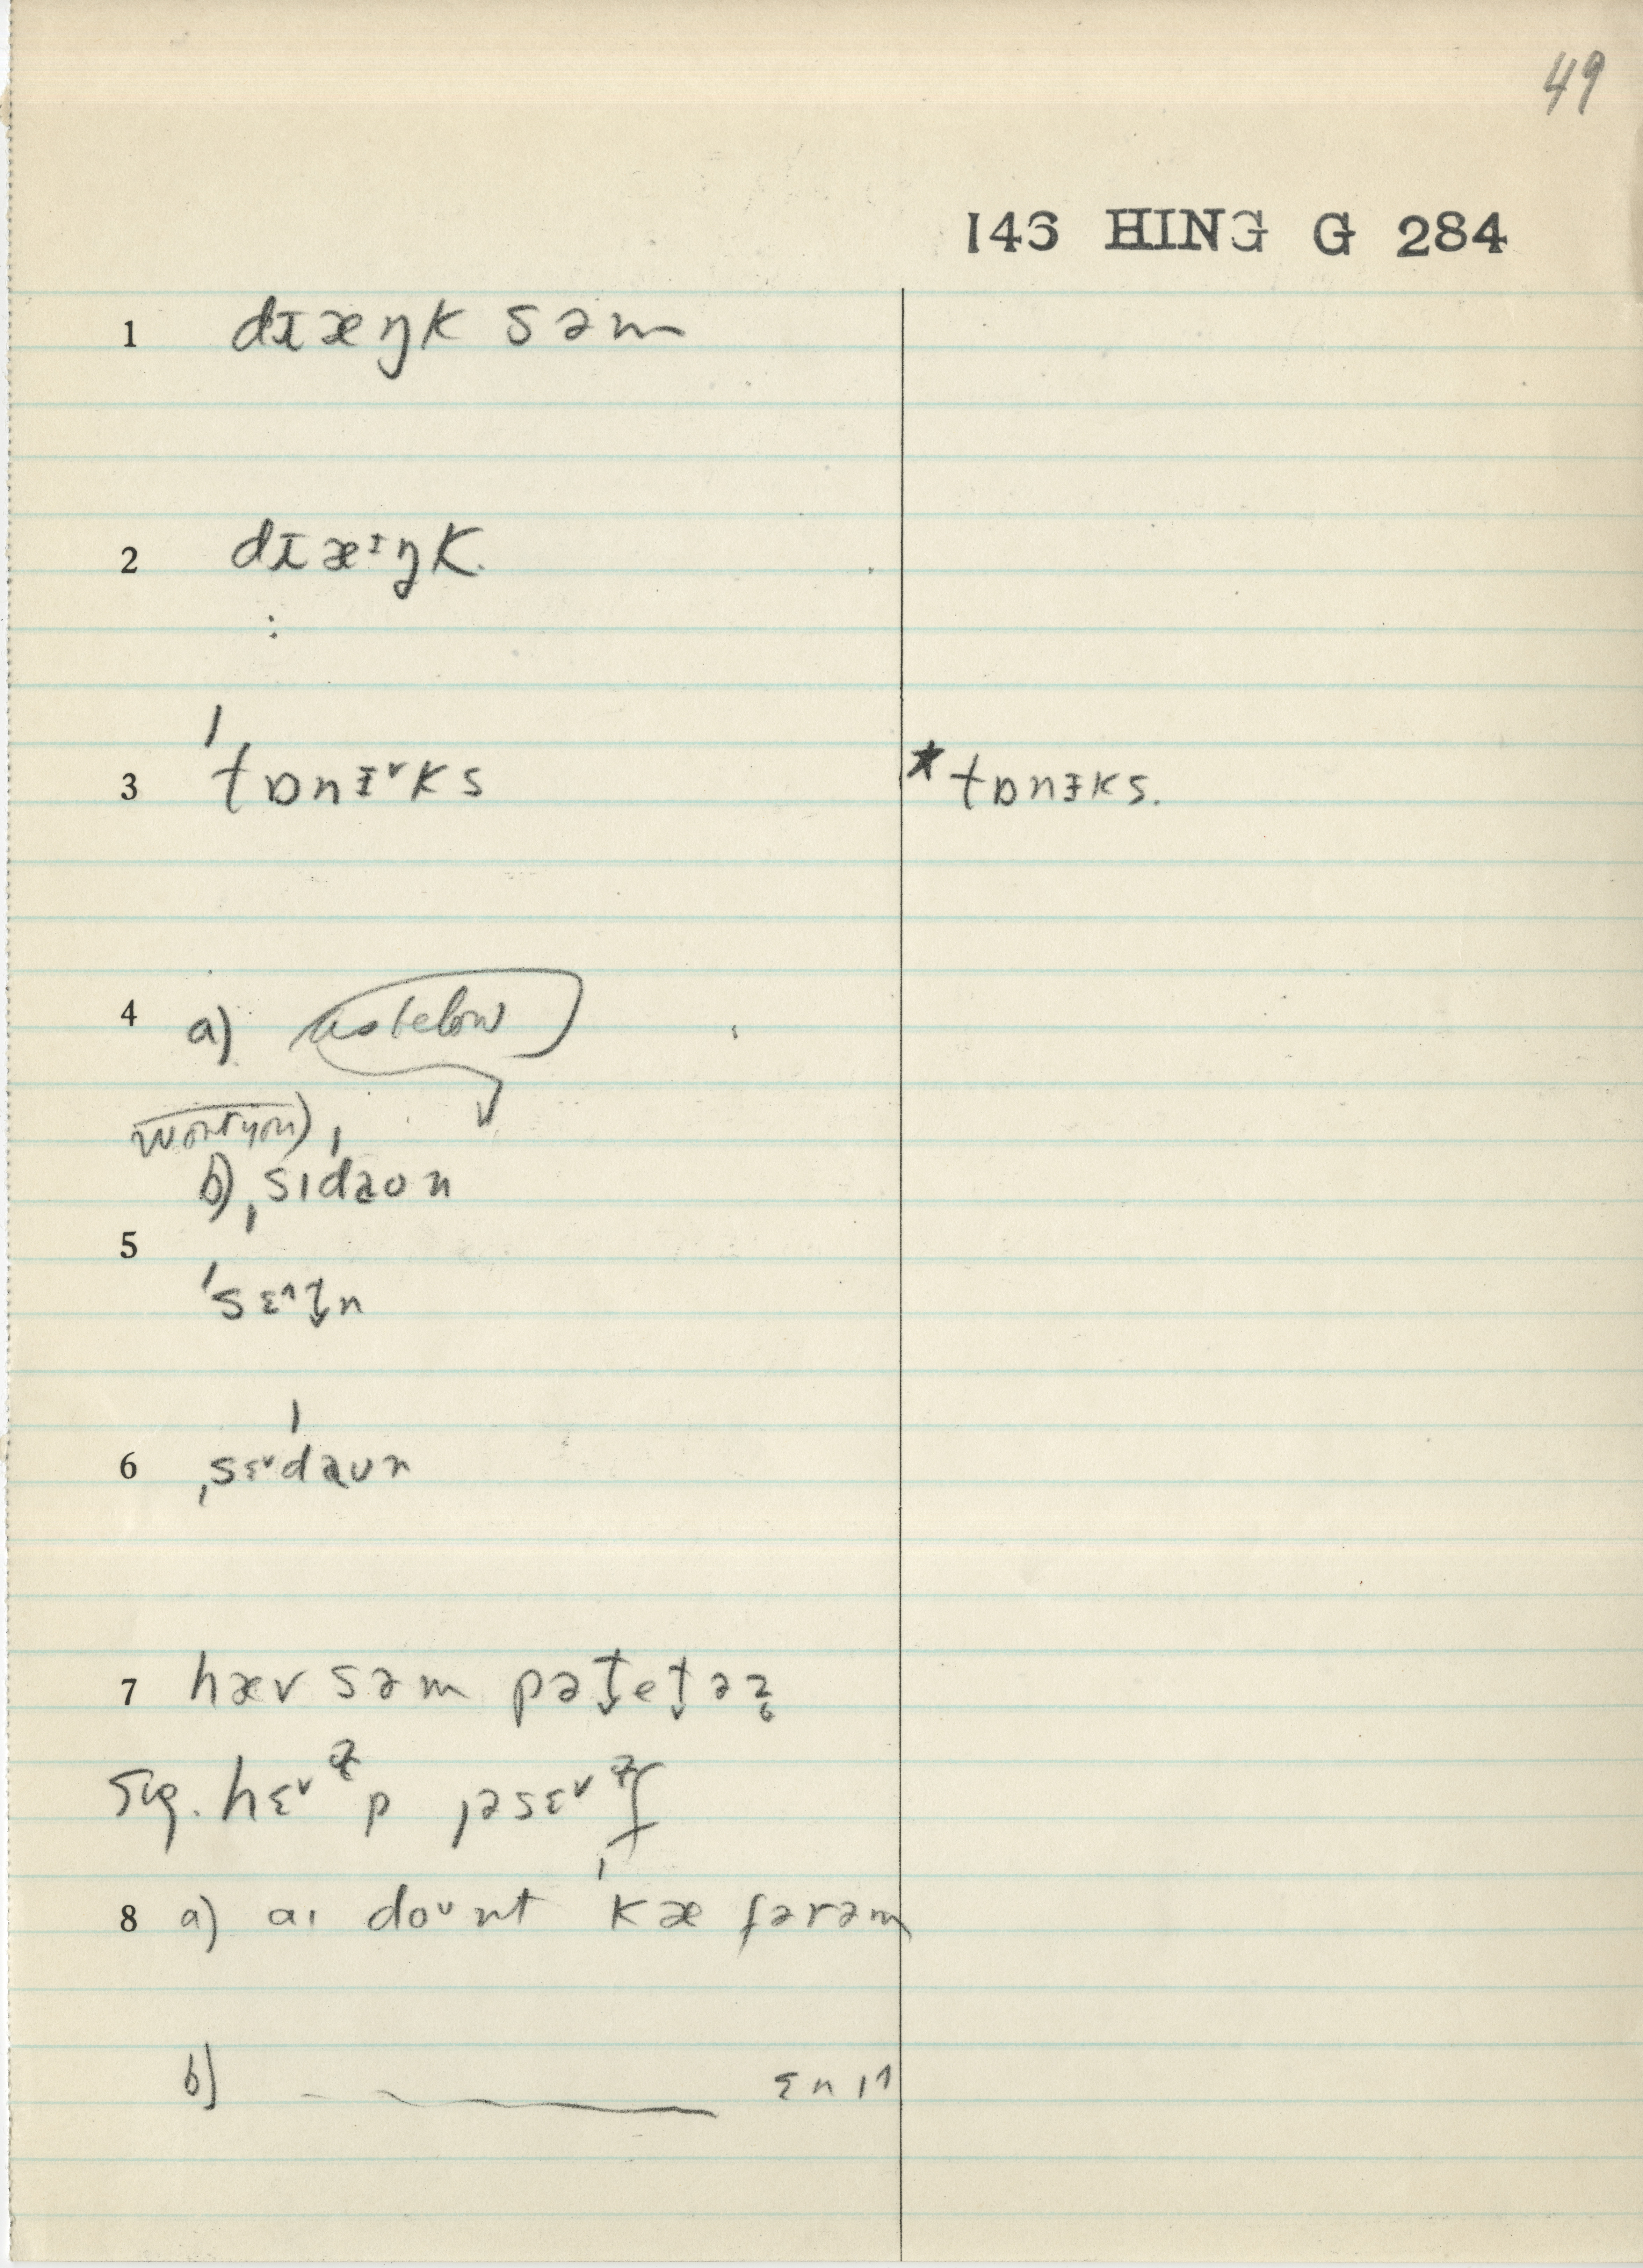 49
146 HING G 284
1 dɪæŋk səm
2 dɪæᶦŋk.
:
3 ˈtɒnᵻ˅ks *tɒnᵻks.
4 a) as below
b) ˌsɪˈdaʊn
5
ˈsɛ˄t̬n
6 ˌsɛ˅ˈdaʊn
7 hæv səm pət̬et̬əz̥
Sig. hɛ˅ᵊp ˌəsɛ˅ᵊf
8 a) aɪ doʊnt ˈkæ fərəm
b) ——— ɛnɪ˄